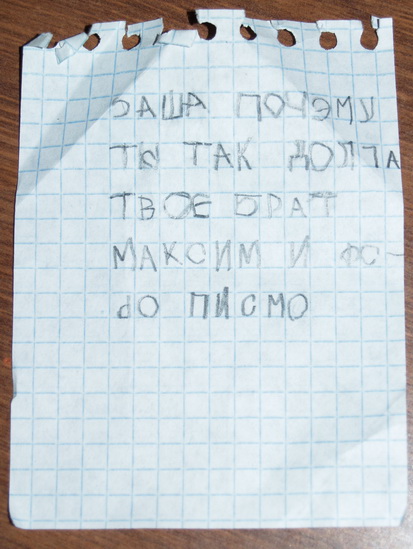 САША ПОЧЭМУ
ТЫ ТАК ДОЛГА
ТВОЕ БРАТ
МАКСИМ И ФС-
ДО ПИСМО